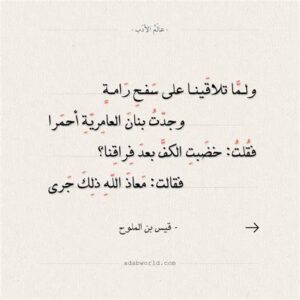 - عالم الأدب -
ولمَّا تلاقَينا على سَفحِ رَامة
وجدّتُ بنانَ العامِريّةِ أحمَرا
فقُلتُ: خضَبتِ الكفَّ بعدَ فِراقِنا؟
فقالت: مَعاذَ اللهِ ذلِكَ جَرى
- قيس بن الملوح
adabworld.com